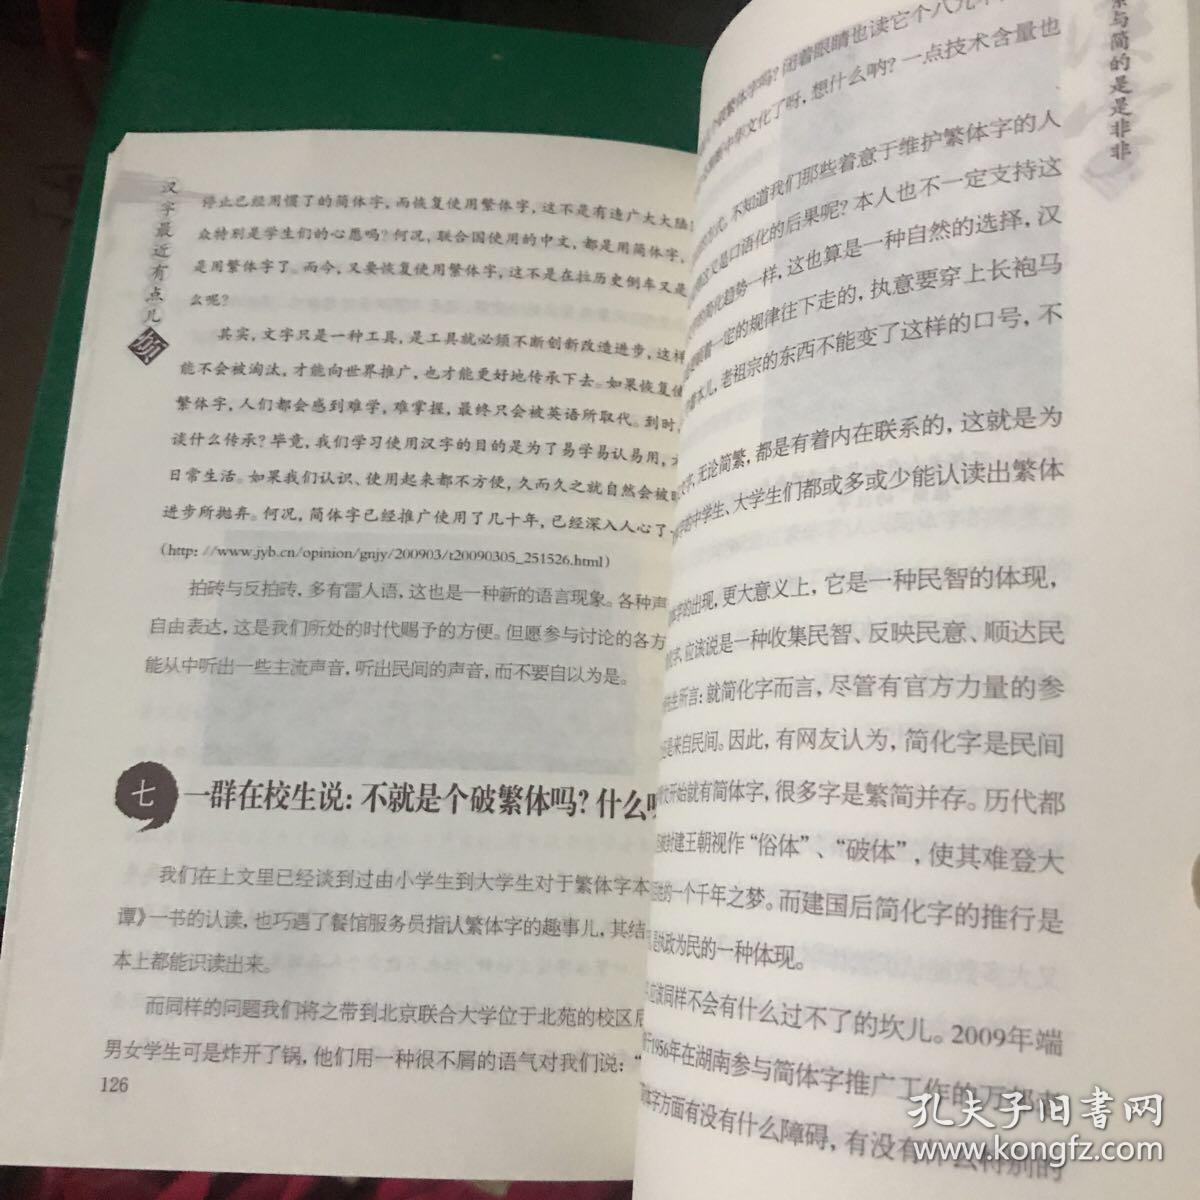 汉字最近有点儿烦
停止已经用惯了的简体字，而恢复使用繁体字，这不是有违广大大陆
众特别是学生们的心愿吗？何况，联合国使用的中文，都是用简体字，
是用繁体字了。而今，又要恢复使用繁体字，这不是在拉历史倒车又是
么呢？
其实，文字只是一种工具，是工具就必须不断创新改造进步，这样
能不会被淘汰，才能向世界推广，也才能更好地传承下去。如果恢复使
繁体字，人们都会感到难学，难掌握，最终只会被英语所取代。到时，
谈什么传承？毕竟，我们学习使用汉字的目的是为了易学易认易用，
日常生活。如果我们认识、使用起来都不方便，久而久之就自然会被
进步所抛弃。何况，简体字已经推广使用了几十年，已经深入人心了
（http: //www.jyb.cn/opinion/gnjy/200903/t20090305_251526.html）
拍砖与反拍砖，多有雷人语，这也是一种新的语言现象。各种声
自由表达，这是我们所处的时代赐予的方便。但愿参与讨论的各方
能从中听出一些主流声音，听出民间的声音，而不要自以为是。
七 一群在校生说：不就是个破繁体吗？什么
我们在上文里已经谈到过由小学生到大学生对于繁体字本
谭》一书的认读，也巧遇了餐馆服务员指认繁体字的趣事儿，其结
本上都能识读出来。
而同样的问题我们将之带到北京联合大学位于北苑的校区后
男女学生可是炸开了锅，他们用一种很不屑的语气对我们说：“
126
与简的是是非非
繁体字吗？闭着眼睛也读它个八九
中华文化了呀，想什么呐？一点技术含量也
方式，不知道我们那些着意于维护繁体字的人
这又是口语化的后果呢？本人也不一定支持这
的简化趋势一样，这也算是一种自然的选择，汉
着一定的规律往下走的，执意要穿上长袍马
本儿，老祖宗的东西不能变了这样的口号，不
文字，无论简繁，都是有着内在联系的，这就是为
的中学生、大学生们都或多或少能认读出繁体
字的出现，更大意义上，它是一种民智的体现，
字，应该说是一种收集民智、反映民意、顺达民
先生所言：就简化字而言，尽管有官方力量的参
是来自民间。因此，有网友认为，简化字是民间
文开始就有简体字，很多字是繁简并存。历代都
封建王朝视作“俗体”、“破体”，使其难登大
的一个千年之梦。而建国后简化字的推行是
是执政为民的一种体现。
应该同样不会有什么过不了的坎儿。2009年端
于1956年在湖南参与简体字推广工作的万部
体字方面有没有什么障碍，有没有什么特别的
孔夫子旧书网
www.kongfz.com